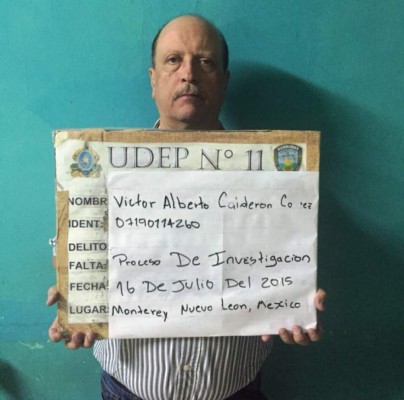 UDEP Nº 11
NOMBR Victor Alberto Calderon
IDENT: 07190114260
DELITO
FALTA: Proceso De Investigacion
FECHA: 16 De Julio Del 2015
LUGAR: Monterey Nuevo Leon, Mexico